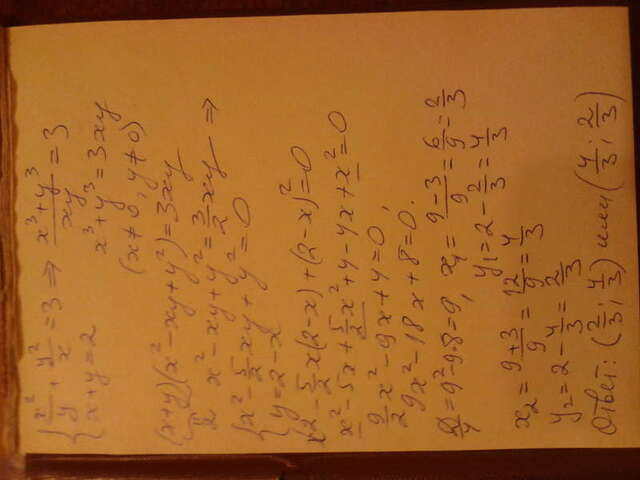 { x²/y + y²/x = 3 ⇒ (x³+y³)/xy = 3
{ x+y=2   x³+y³=3xy
(x≠0, y≠0)
(x+y)(x²-xy+y²)=3xy
2   x²-xy+y²=3/2xy ⇒
{ x²-5/2xy+y²=0
{ y=2-x
x²-5/2x(2-x)+(2-x)²=0
x²-5x+5/2x²+4-4x+x²=0
9/2x²-9x+4=0,
9x²-18x+8=0.
D/4=9²-9·8=9, x₁=(9-3)/9=6/9=2/3
y₁=2-2/3=4/3
x₂=(9+3)/9=12/9=4/3
y₂=2-4/3=2/3
Ответ: (2/3; 4/3) или (4/3; 2/3)